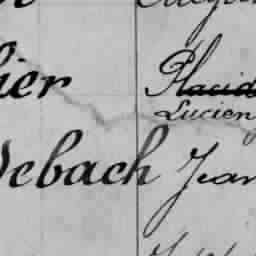 lier Placid
Lucien
Debach Jean